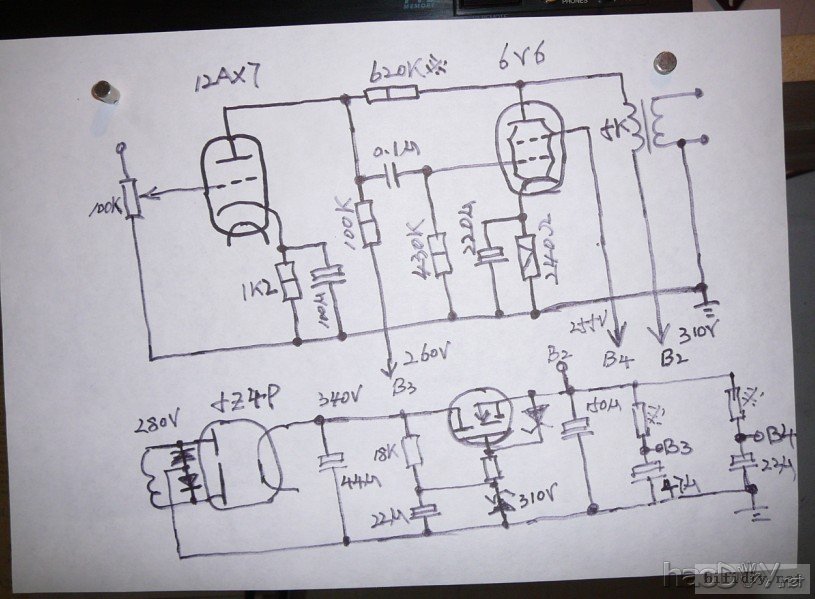 MEMORY
PHONES
12AX7
620K※
6V6
5K
0.1μ
100K
100K
430K
220μ
240Ω
1K2
100μ
260V
B3
255V
B4
B2
310V
280V
5Z4P
340V
B2
18K
44μ
22μ
310V
150μ
※
B3
47μ
※
B4
22μ
hifidiy.net